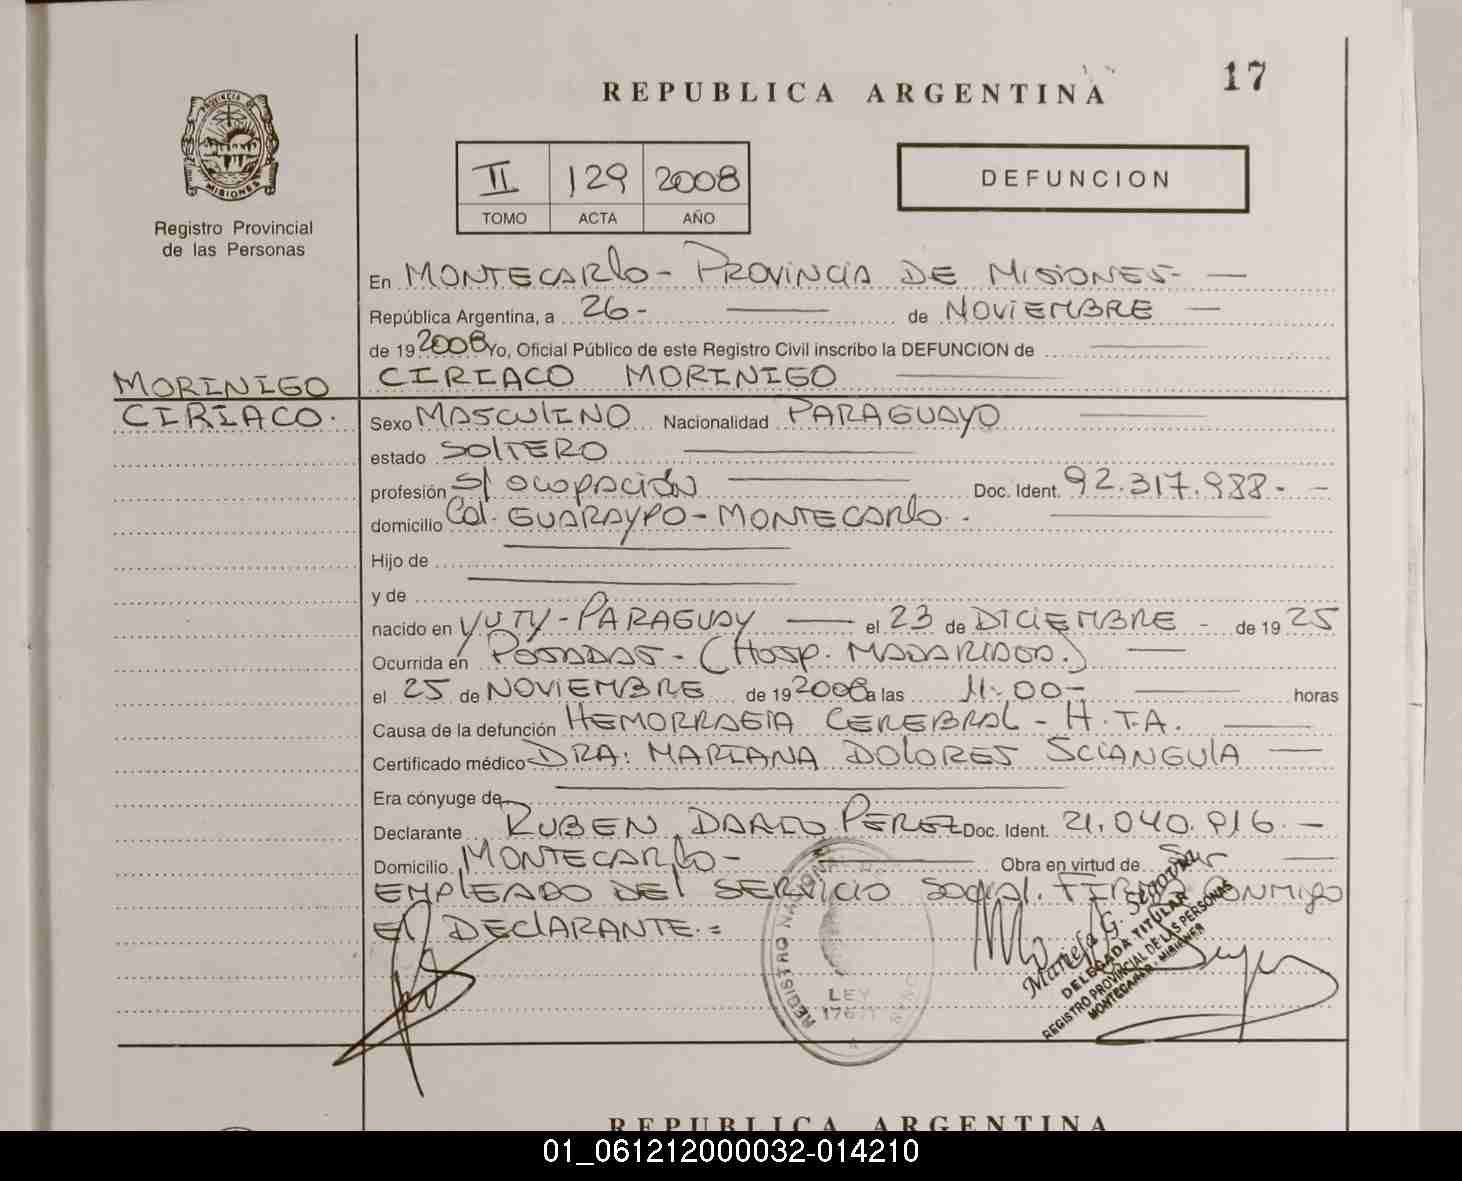 17
REPUBLICA ARGENTINA
PROVINCIA DE
MISIONES
Registro Provincial
de las Personas
II 129 2008
TOMO ACTA AÑO
DEFUNCION
En MONTECARLO - PROVINCIA DE MISIONES -
República Argentina, a 26 - de NOVIEMBRE
de 19 2008 Yo, Oficial Público de este Registro Civil inscribo la DEFUNCION de
CIRIACO MORINIGO
MORINIGO
CIRIACO.
Sexo MASCULINO Nacionalidad PARAGUAYO
estado SOLTERO
profesión S/ OCUPACIÓN Doc. Ident. 92.317.988 - -
domicilio Col. GUARAYPO - MONTECARLO.
Hijo de
y de
nacido en YUTY - PARAGUAY el 23 de DICIEMBRE - de 19 25
Ocurrida en POSADAS - (HOSP. MADARIAGA.)
el 25 de NOVIEMBRE de 19 2008 a las 11:00 - horas
Causa de la defunción HEMORRAGIA CEREBRAL - H.T.A.
Certificado médico DRA: MARIANA DOLORES SCIANGULA
Era cónyuge de
Declarante RUBEN DARIO PEREZ Doc. Ident. 21.040.916. -
Domicilio MONTECARLO - Obra en virtud de Ser
EMPLEADO DEL SERVICIO SOCIAL. FIRMA CONMIGO
EL DECLARANTE. =
REGISTRO NACIONAL DE
LEY
17671
Mariela G.
DELEGADA TITULAR
REGISTRO PROVINCIAL DE LAS PERSONAS
MONTECARLO - MISIONES
REPUBLICA ARGENTINA
01_061212000032-014210